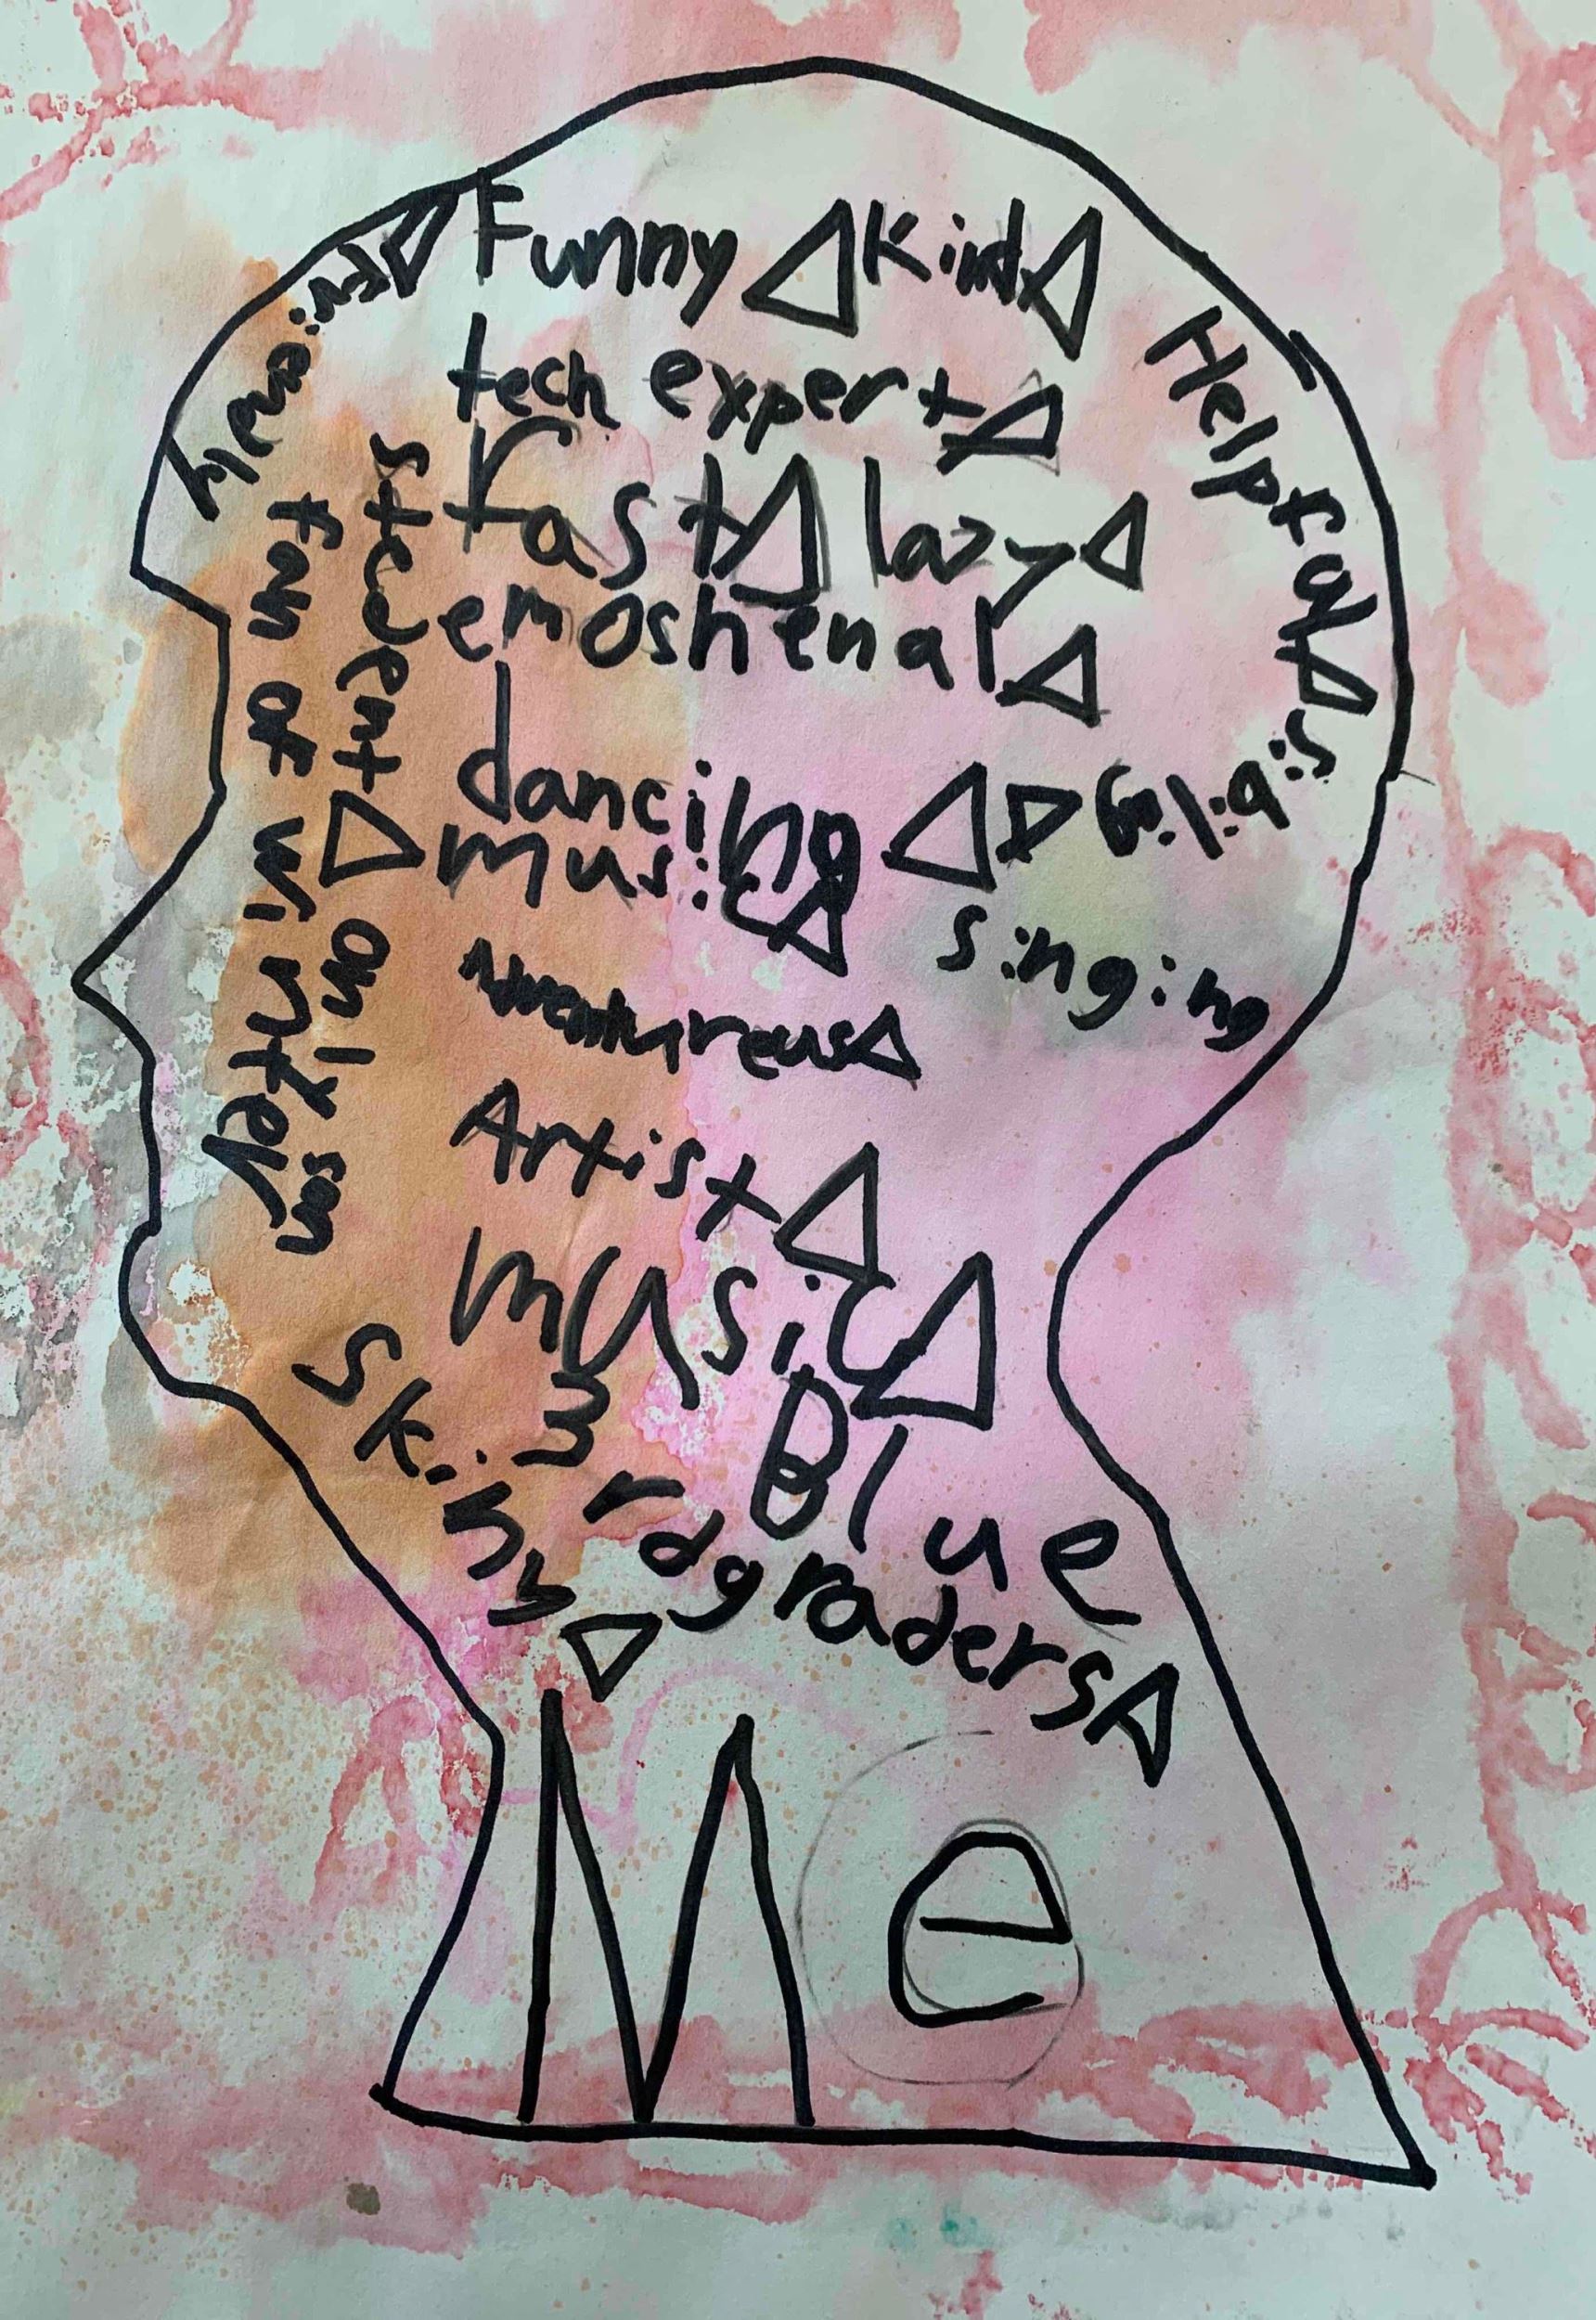 Funny Kind
tech expert
Fast lazy
emoshenal
dancing
music
singing
Artist
music
Blue
3rdgraders
Skinny
Helpful
fan of winter
Me